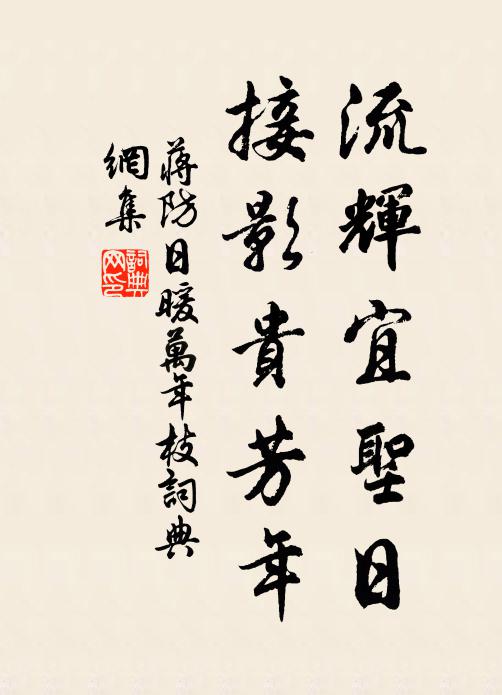 流輝宜聖日
接影貴芳年
蔣防日暖萬年枝詞典
網集
詞典網印